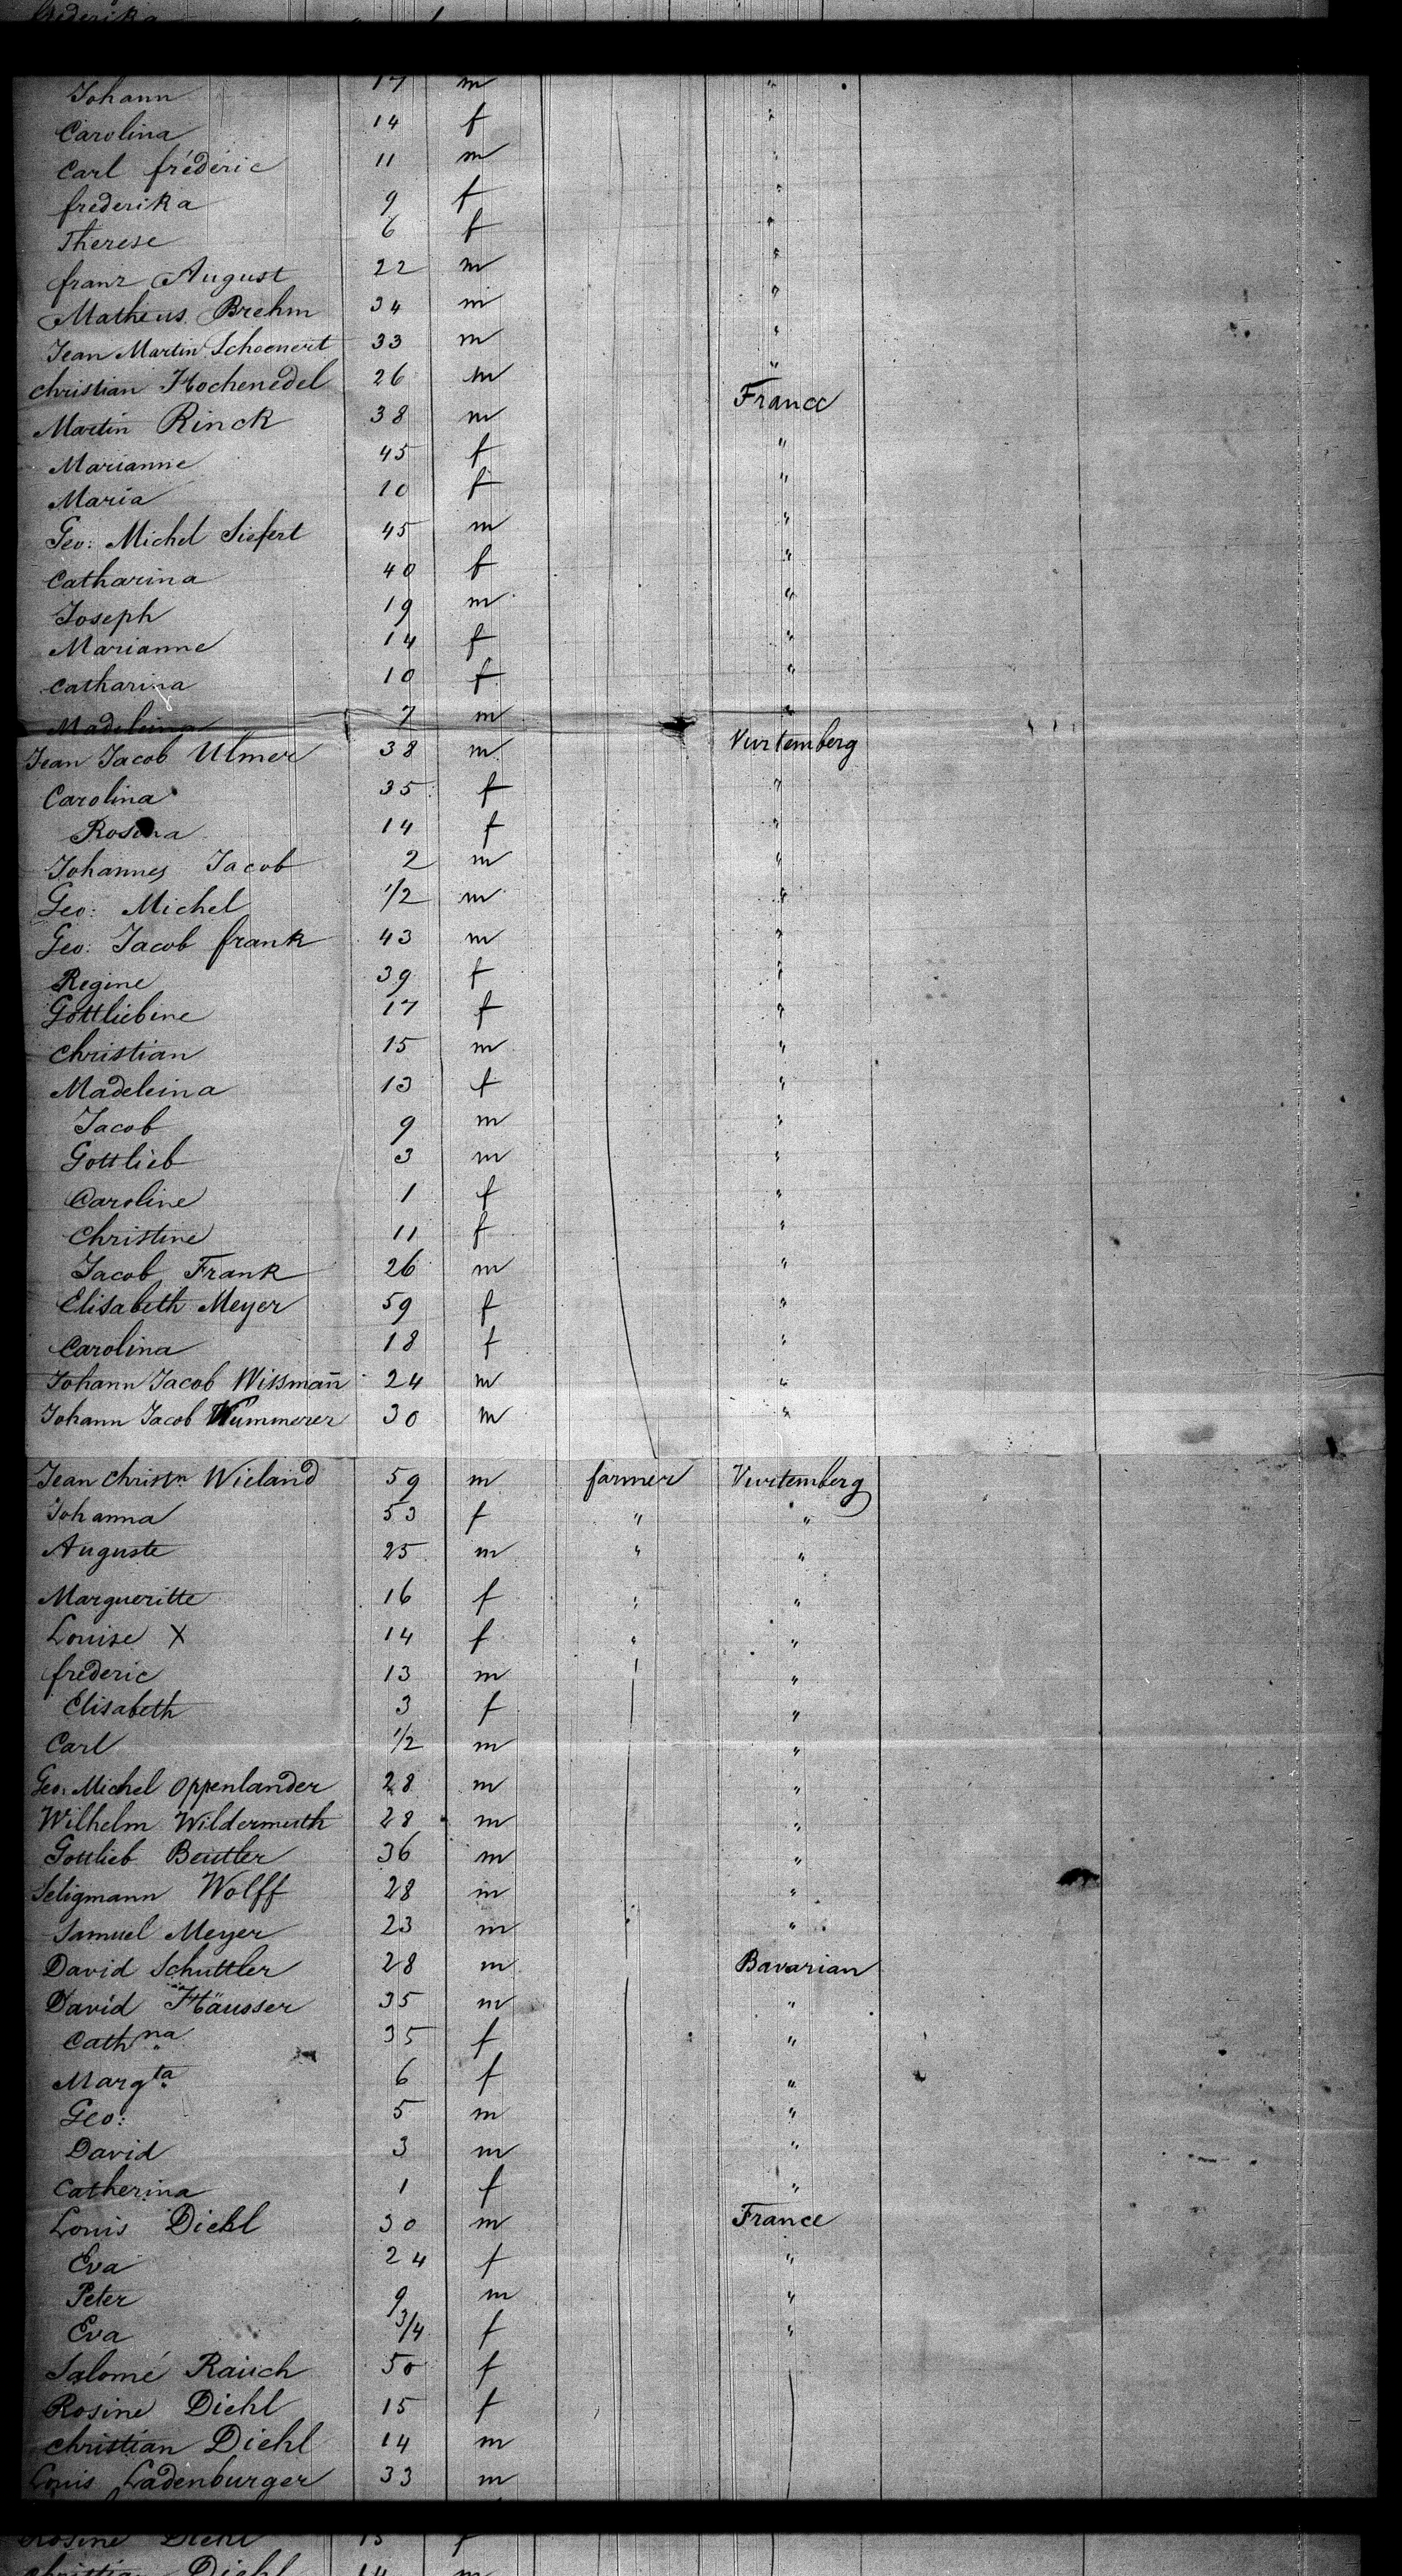 frederika
Johann 17 m "
Carolina 14 f "
Carl fréderic 11 m "
frederika 9 f "
Therese 6 f "
franz August 22 m "
Matheus Brehm 34 m "
Jean Martin Schoenert 33 m "
christian Hochenedel 26 m "
Martin Rinck 38 m France
Marianne 45 f "
Maria 10 f "
Geo: Michel Siefert 45 m "
Catharina 40 f "
Joseph 19 m "
Marianne 14 f "
Catharina 10 f "
Madeleina 7 m "
Jean Jacob Ulmer 38 m Vurtemberg
Carolina 35 f "
Rosina 14 f "
Johannes Jacob 2 m "
Geo: Michel 1/2 m "
Geo: Jacob frank 43 m "
Regine 39 f "
Gottliebine 17 f "
christian 15 m "
Madeleina 13 f "
Jacob 9 m "
Gottlieb 3 m "
Caroline 1 f "
christine 11 f "
Jacob Frank 26 m "
Elisabeth Meyer 59 f "
Carolina 18 f "
Johann Jacob Wissmañ 24 m "
Johann Jacob Wummerer 30 m "
Jean christn Wieland 59 m farmer Vurtemberg
Johanna 53 f " "
Auguste 25 m " "
Margueritte 16 f " "
Louise X 14 f " "
frederic 13 m "
Elisabeth 3 f "
Carl 1/2 m "
Geo: Michel Oppenlander 28 m "
Wilhelm Wildermuth 28 m "
Gottlieb Beutler 36 m "
Seligmann Wolff 28 m "
Samuel Meyer 23 m "
David Schuttler 28 m Bavarian
David Häusser 35 m "
Cathna 35 f "
Margta 6 f "
Geo: 5 m "
David 3 m "
Catherina 1 f "
Louis Diehl 30 m France
Eva 24 f "
Peter 9 m "
Eva 3/4 f "
Salomé Rauch 50 f
Rosine Diehl 15 f
christian Diehl 14 m
Louis Ladenburger 33 m
Rosine Diehl 15 f
christian Diehl 14 m